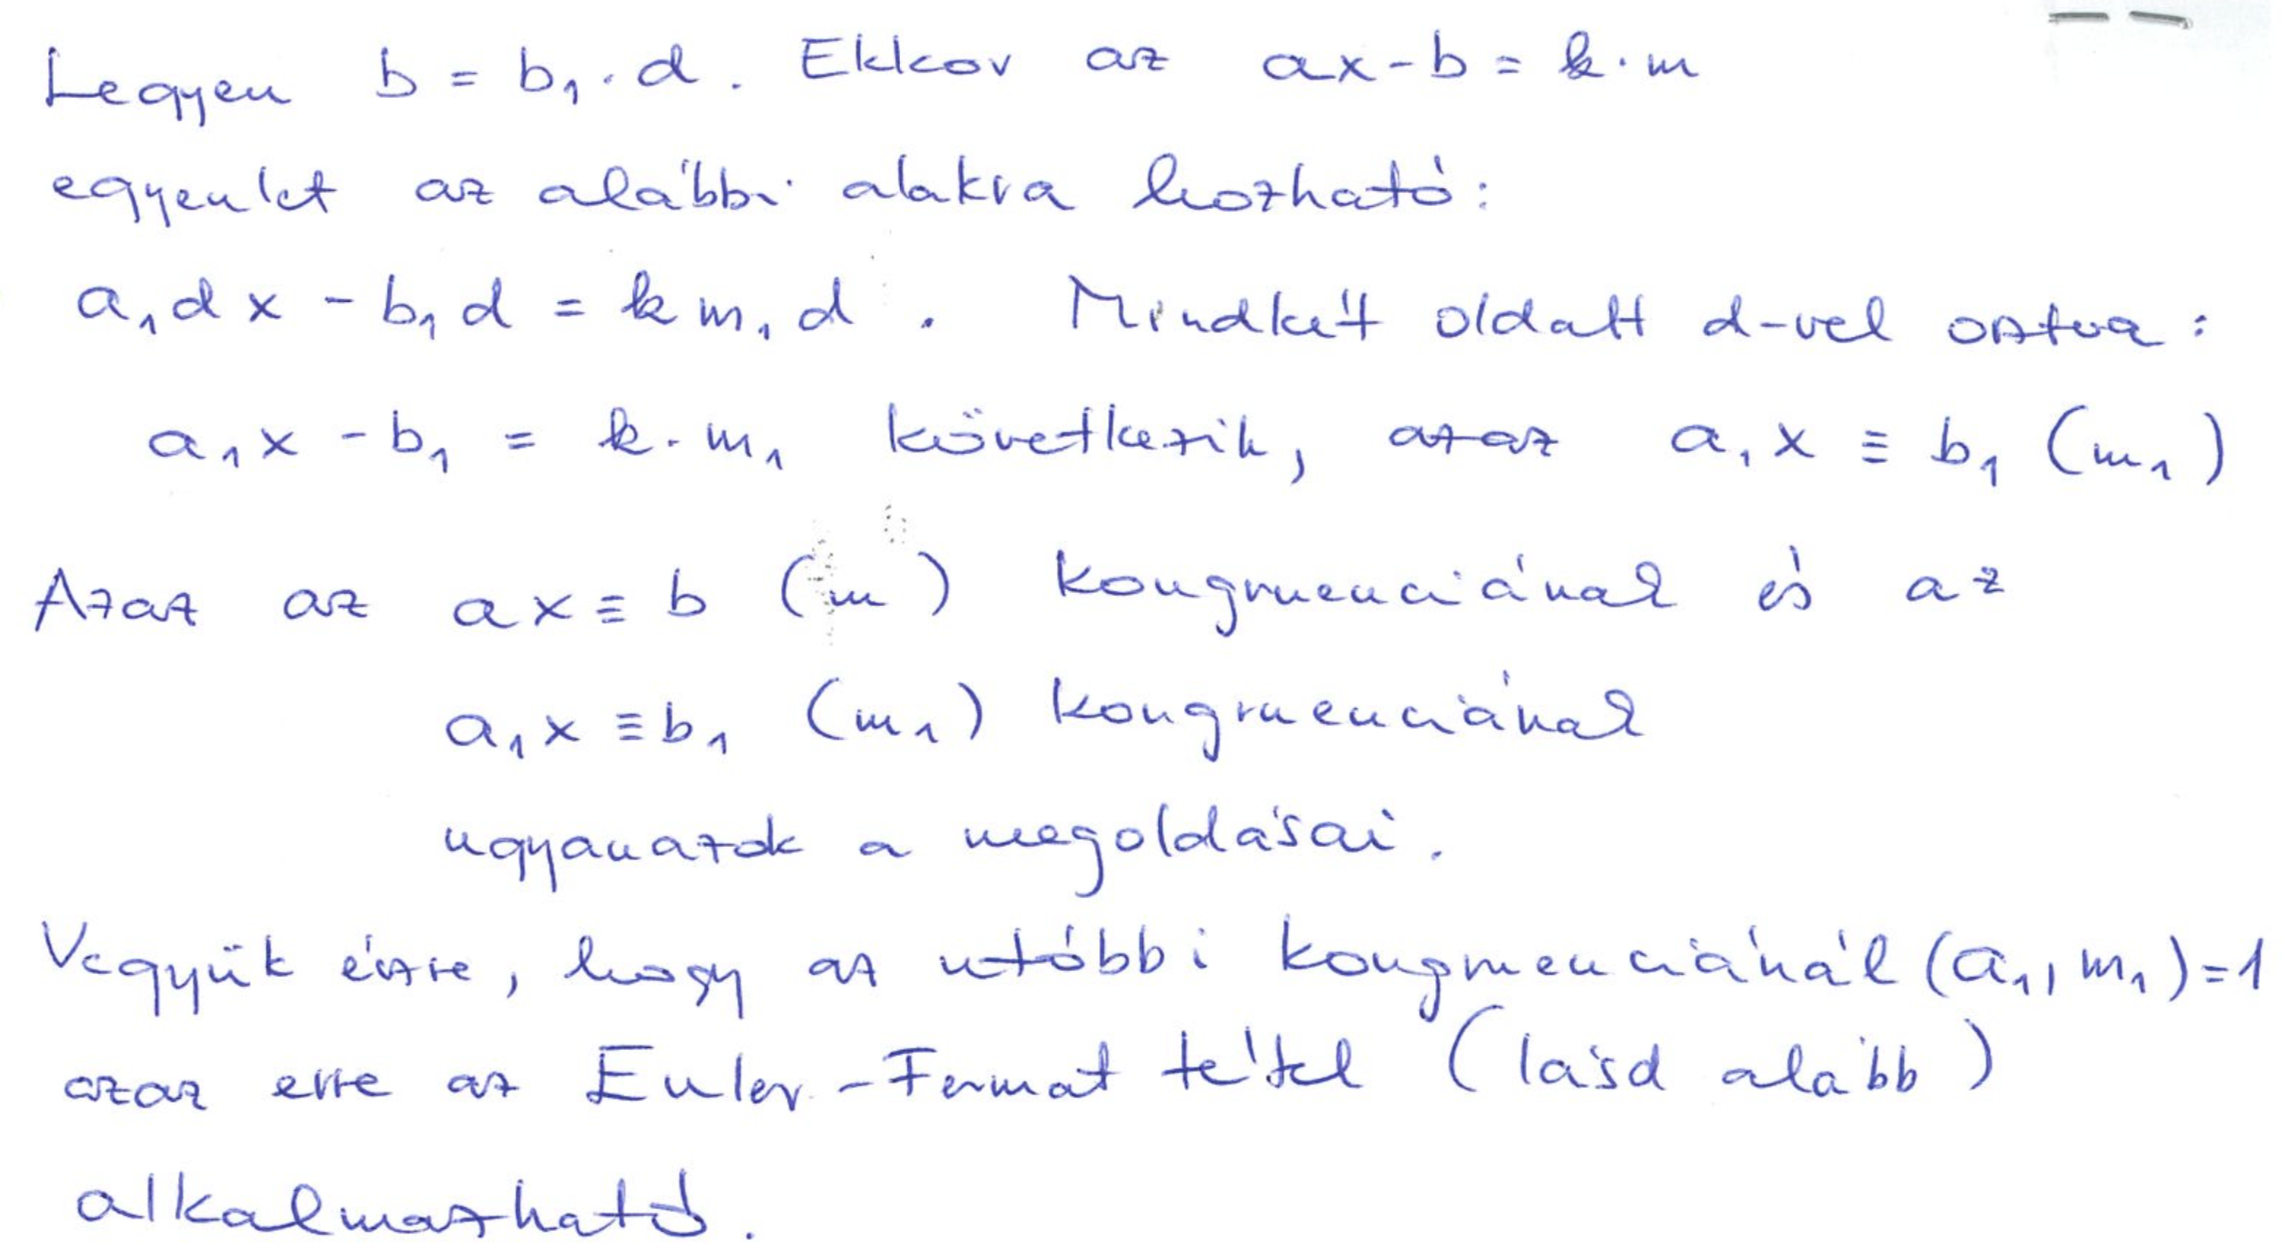 Legyen b = b₁·d. Ekkor az ax-b = k·m
egyenlet az alábbi alakra hozható:
a₁dx - b₁d = k m₁d. Mindkét oldalt d-vel osztva:
a₁x - b₁ = k·m₁ következik, azaz a₁x ≡ b₁ (m₁)
Azaz az ax ≡ b (m) kongruenciának és az
a₁x ≡ b₁ (m₁) kongruenciának
ugyanazok a megoldásai.
Vegyük észre, hogy az utóbbi kongruenciánál (a₁, m₁) = 1
azaz erre az Euler-Fermat tétel (lásd alább)
alkalmazható.